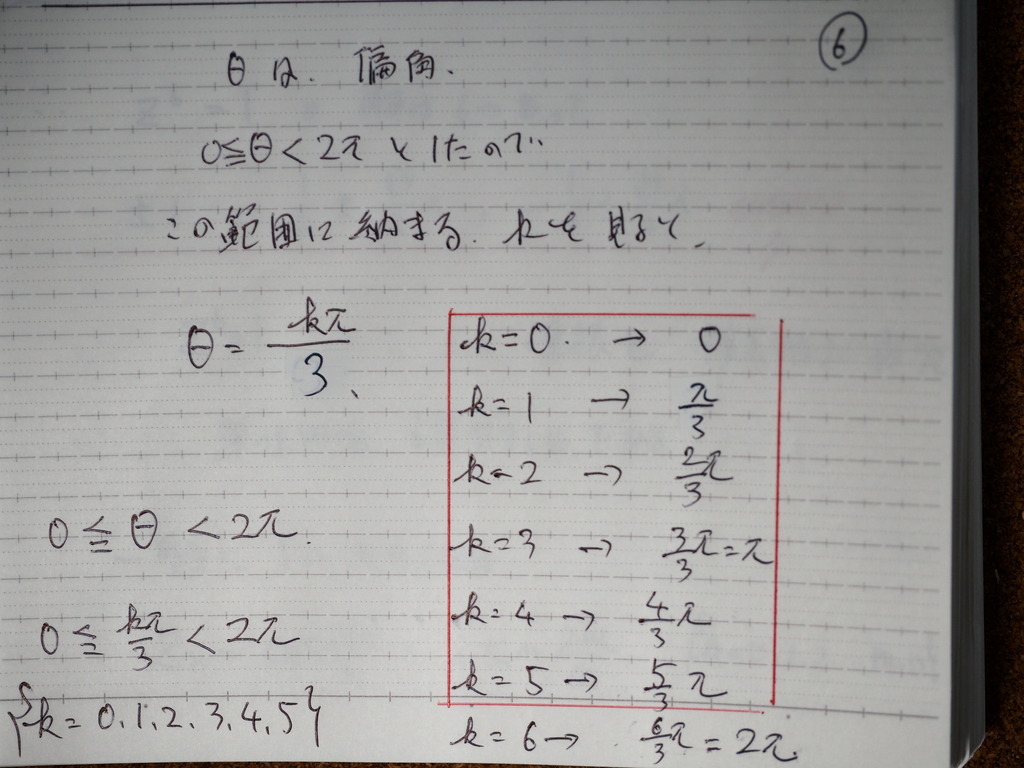 ⑥
θは. 偏角.
0≦θ<2πとしたので..
この範囲に納まる. kを見ると.
θ=kπ/3、
k=0. → 0
k=1 → π/3
k=2 → 2/3π
k=3 → 3π/3=π
k=4 → 4/3π
k=5 → 5/3π
k=6 → 6/3π=2π.
0≦θ<2π.
0≦kπ/3<2π
{k=0.1.2.3.4.5}